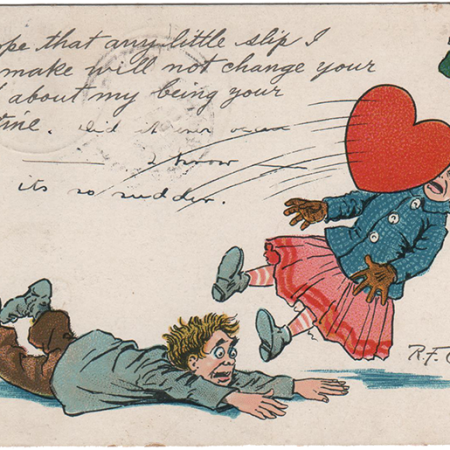 ope that any little slip I
make will not change your
about my being your
tine. did it ever
I know
its so sudden.
R.F.